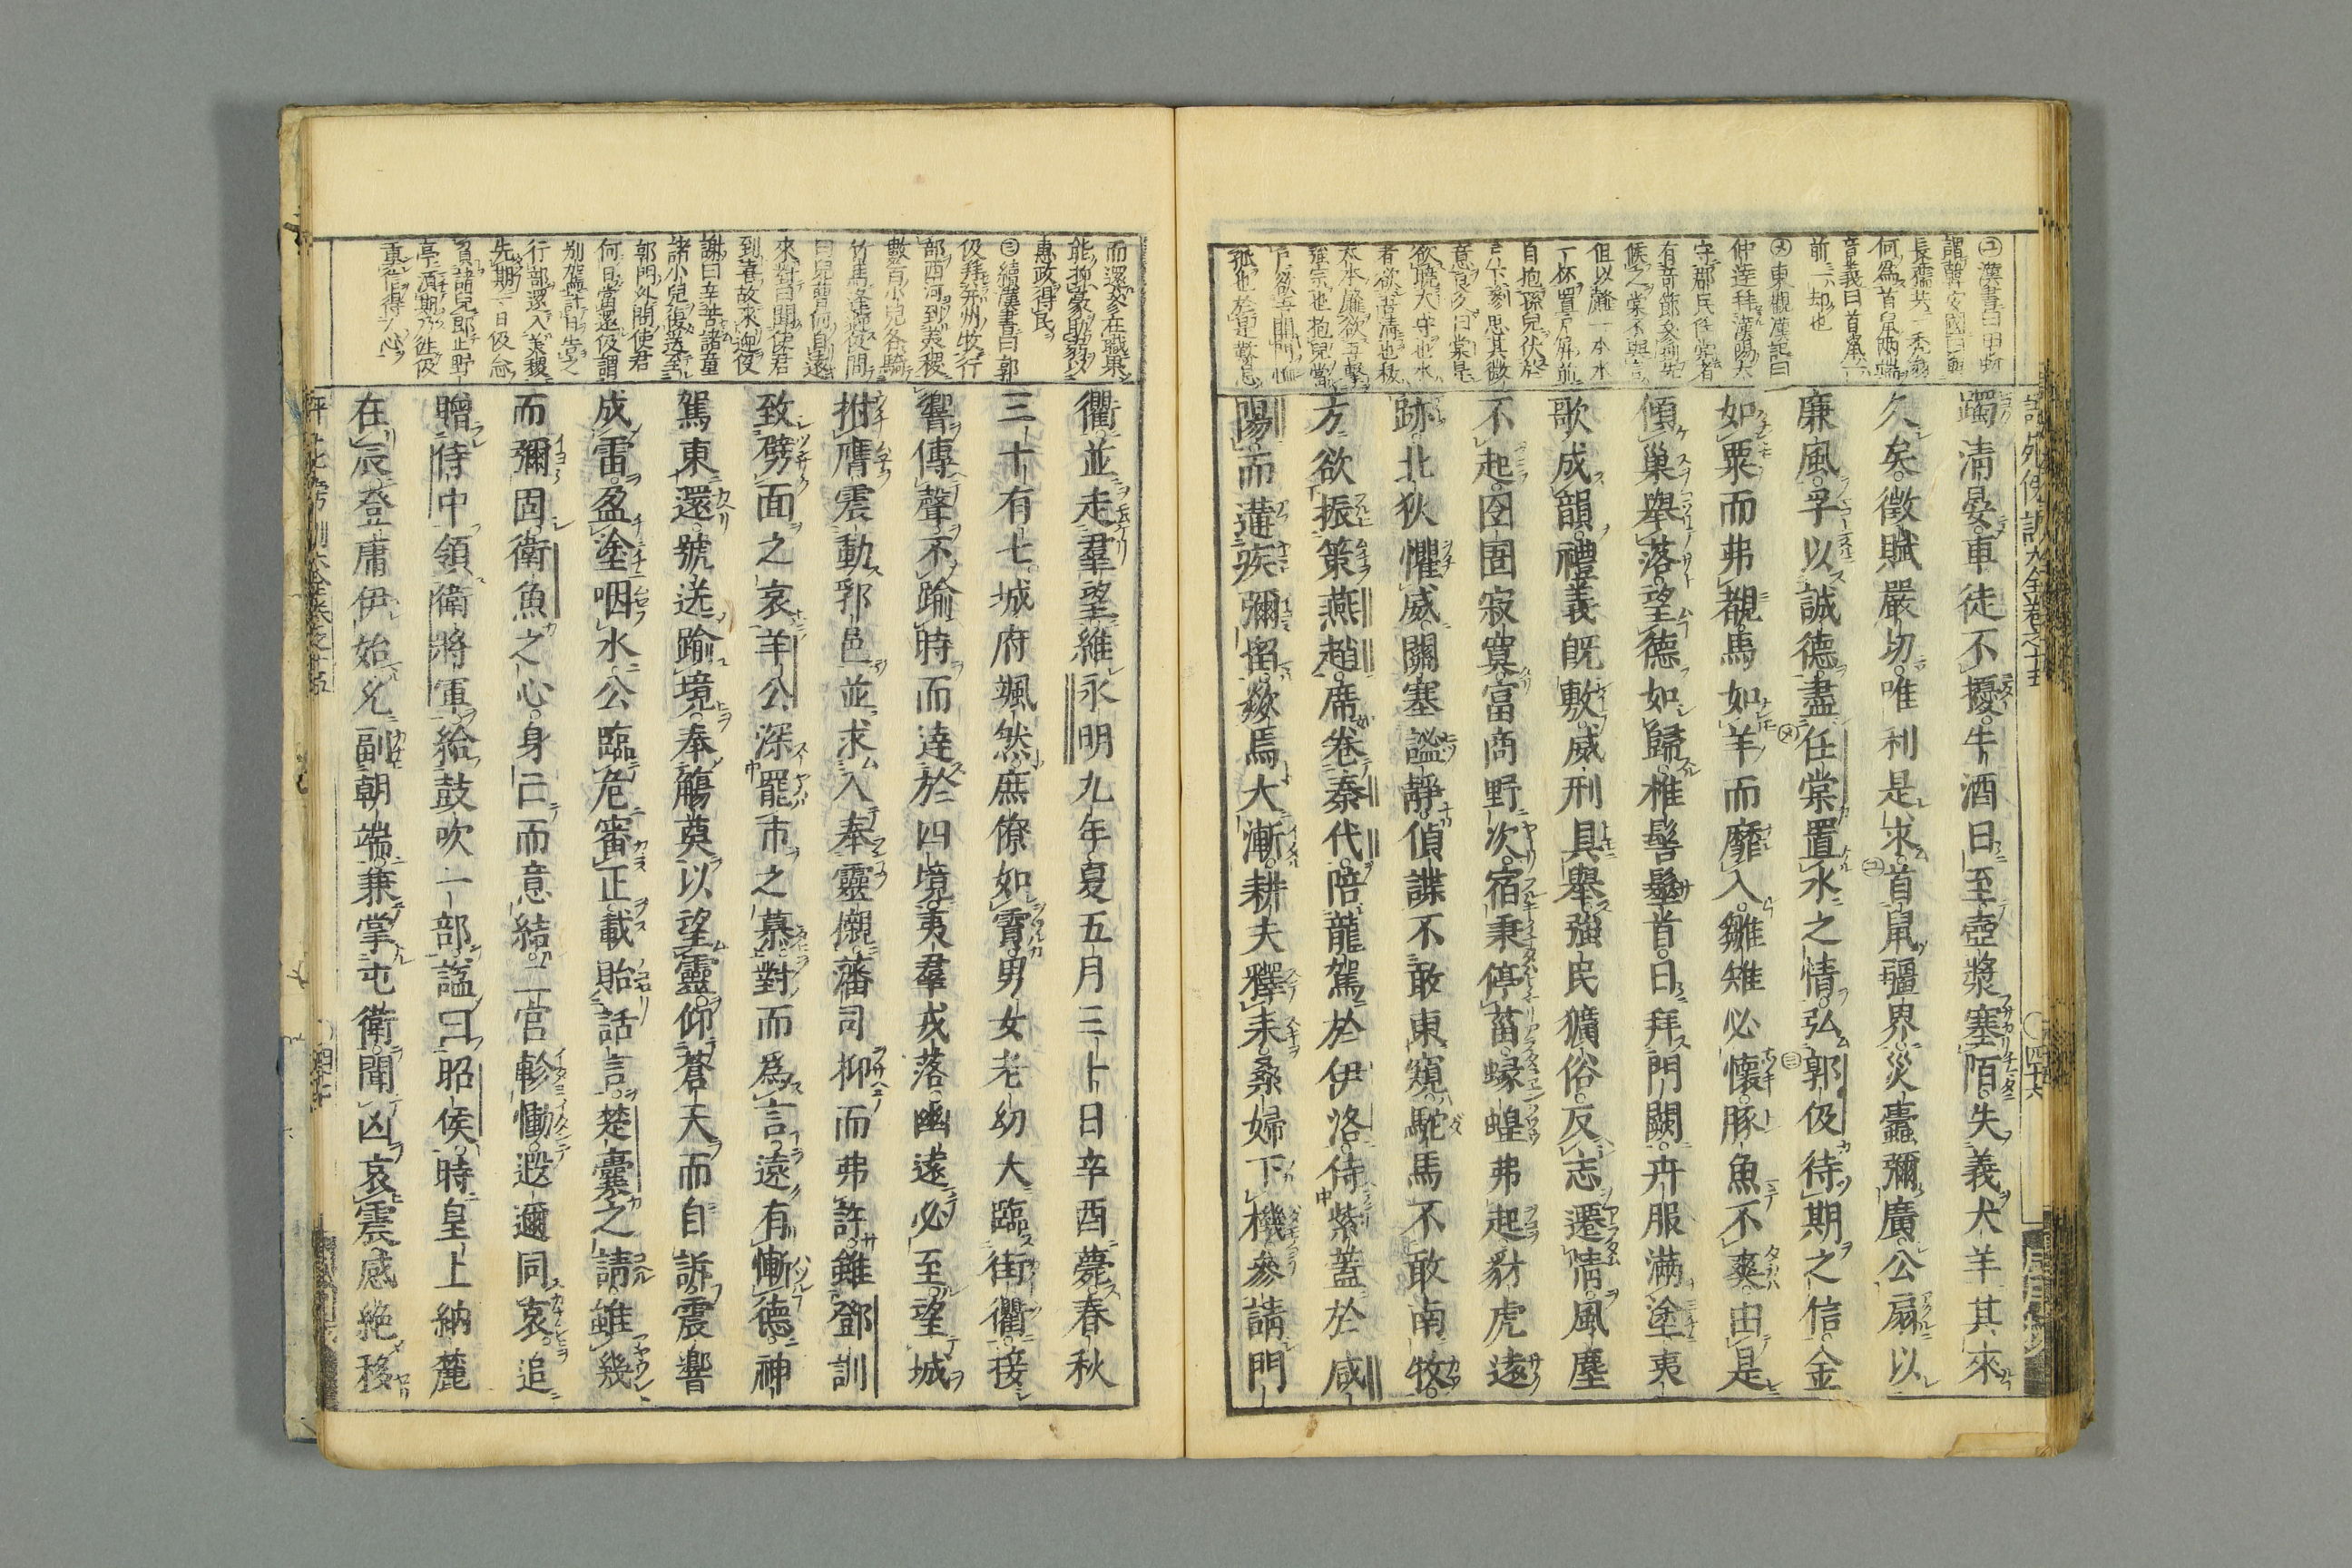 躅清晏車徒不擾牛酒日至壺漿塞陌失義犬羊其來
久矣徵賦嚴切唯利是求首鼠疆界災蠹彌廣公扇以
廉風孚以誠德盡任棠置水之情弘郭伋待期之信金
如粟而弗覩馬如羊而靡入雛雉必懷豚魚不爽由是
傾巢舉落望德如歸椎髻髽首日拜門闕卉服滿塗夷
歌成韻禮義既敷威刑具舉強民獷俗反志遷情風塵
不起囹圄寂寞富商野次宿秉停菑蝝蝗弗起豺虎遠
跡北狄懼威關塞謐靜偵諜不敢東窺駝馬不敢南牧
方欲振策燕趙席卷秦代陪龍駕於伊洛侍紫蓋於咸
陽而遘疾彌留欻焉大漸耕夫釋耒桑婦下機參請門
衢並走羣望維永明九年夏五月三十日辛酉薨春秋
三十有七城府颯然庶僚如霣男女老幼大臨街衢接
響傳聲不踰時而達於四境夷羣戎落幽遠必至望城
拊膺震動郛邑並求入奉靈櫬藩司抑而弗許雖鄧訓
致劈面之哀羊公深罷市之慕對而為言遠有慚德神
駕東還號送踰境奉觴奠以望靈仰蒼天而自訴震響
成雷盈塗咽水公臨危審正載貽話言楚囊之請雖幾
而彌固衛魚之心身亡而意結二宮軫慟遐邇同哀追
贈侍中領衛將軍給鼓吹一部諡曰昭侯時皇上納麓
在辰登庸伊始允副朝端兼掌屯衛聞凶哀震感絶移
㋙漢書曰田蚡
謂韓安國曰與
長孺共一禿翁
何為首鼠兩端
音義曰首鼠
前一却也
㋱東觀漢記曰
仲達拜漢陽太
守郡民任棠者
有奇節參到先
候之棠不與言
但以薤一本水
一杯置戶屏前
自抱孫兒伏於
戶下參思其微
意良久曰棠是
欲曉太守也水
者欲吾清也拔
大本薤欲吾擊
強宗也抱兒當
戶欲吾開門恤
孤也於是歎息
而還參在職果
能抑豪助弱以
惠政得民
㋛續漢書曰郭
伋拜并州牧行
部西河到美稷
數百小兒各騎
竹馬逢迎伋問
曰兒曹何自遠
來對曰聞使君
到喜故來迎伋
謝曰辛苦諸童
諸小兒復送至
郭門外問使君
何日當還伋謂
別駕計日告之
行部還入美稷
先期一日伋念
負諸兒即止野
亭須期乃往伋
重信得人心